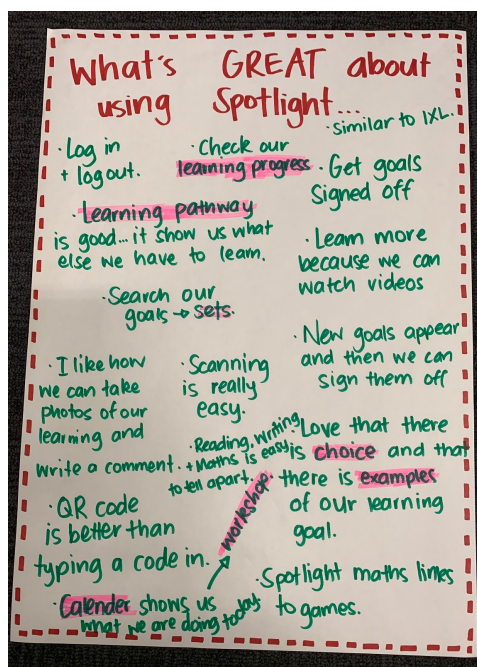 What's GREAT about
using Spotlight...
· Log in
+ log out.
· Check our
learning progress
· Similar to IXL.
· Get goals
Signed off
· Learning pathway
is good... it show us what
else we have to learn.
· Learn more
because we can
watch videos
· Search our
goals → sets.
· New goals appear
and then we can
sign them off
· I like how
we can take
photos of our
learning and
write a comment.
· Scanning
is really
easy.
· Reading, writing
+ Maths is easy
to tell apart.
· Love that there
is choice and that
there is examples
of our learning
goal.
· QR code
is better than
typing a code in.
workshop.
· Calender shows us
what we are doing today
· Spotlight maths links
to games.